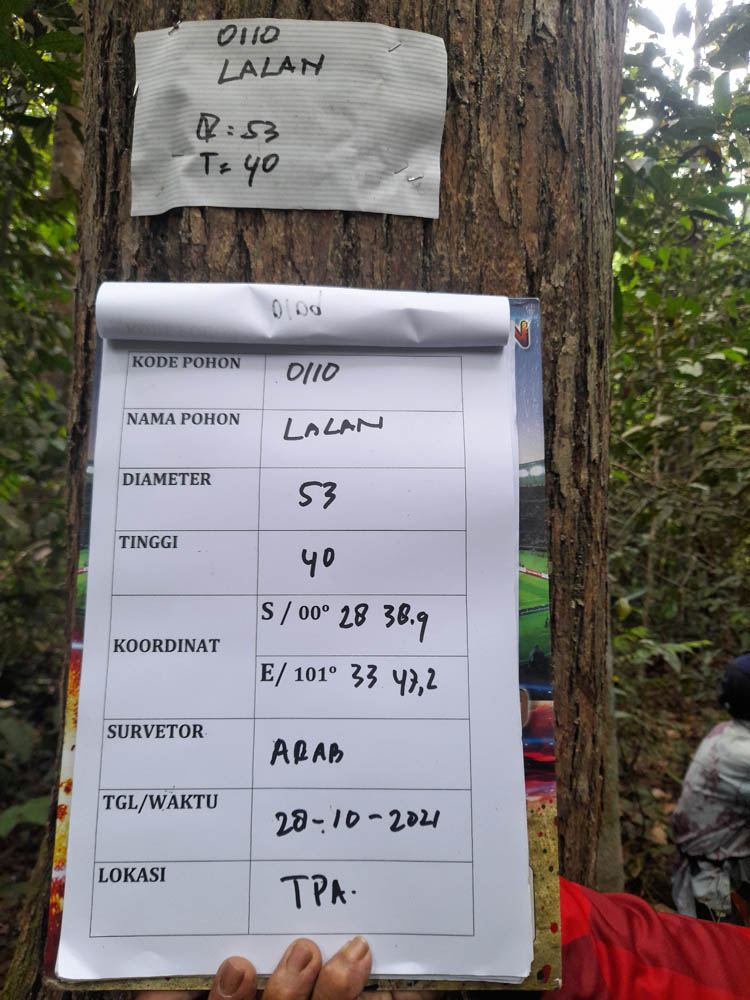 0110
LALAN
D = 53
T = 40
0100
KODE POHON 0110
NAMA POHON LALAN
DIAMETER 53
TINGGI 40
KOORDINAT
S / 00° 28 38.9
E/ 101° 33 47,2
SURVETOR ARAB
TGL/WAKTU 28-10-2021
LOKASI TPA.